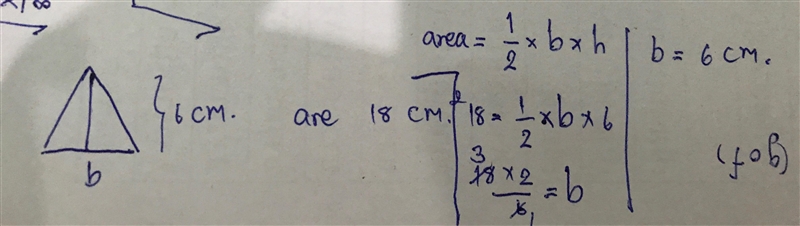 area = 1/2 × b × h
b = 6 cm.
6 cm.
are 18 cm.²
18 = 1/2 × b × 6
3
18 × 2 / 6 = b
1
b